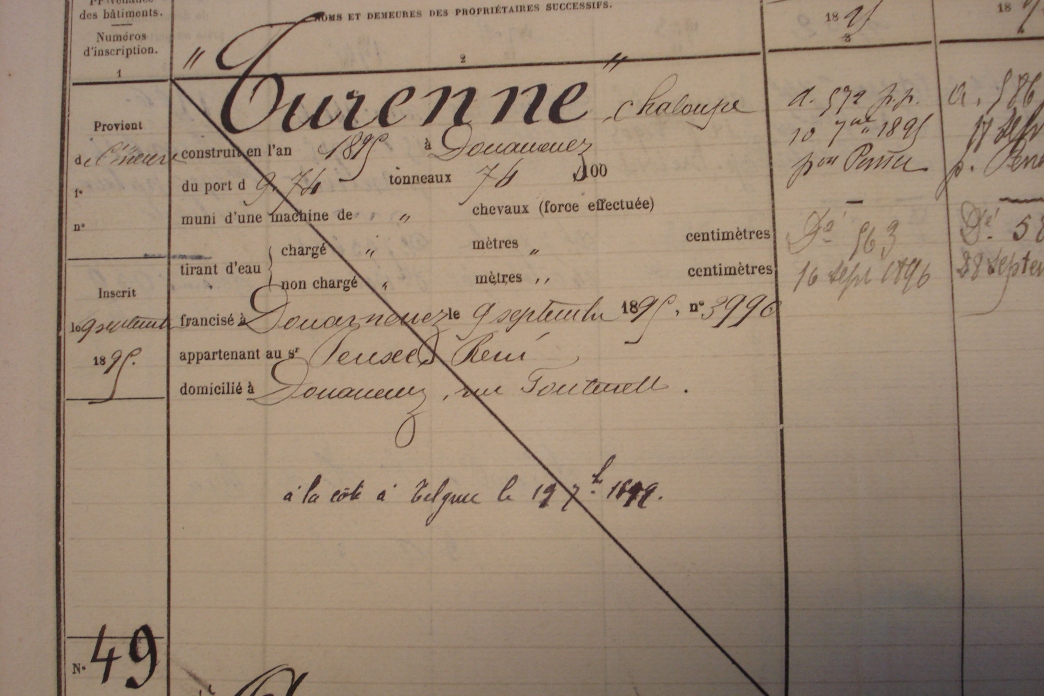 Provenance
des bâtiments.
Numéros
d'inscription.
1
NOMS ET DEMEURES DES PROPRIÉTAIRES SUCCESSIFS.
2
18 95
3
18
4
" Turenne " chaloupe
Provient
de
1°
n°
construit en l'an 1895 à Douarnenez
du port d 9, 74 tonneaux 74 /100
muni d'une machine de " chevaux (force effectuée)
tirant d'eau { chargé " mètres " centimètres
non chargé " mètres " centimètres
Inscrit
le 9 septembre
1895.
francisé à Douarnenez le 9 septembre 1895, n° 3996
appartenant au sr René
domicilié à Douarnenez, rue
à la côte à Telgruc le 19 7bre
a. 572 p.p.
10 7bre 1895
pour
Dé 563
16 Sept 1896
a. 586
17 Sept
p.
Dé 58
28 Septem
N° 49